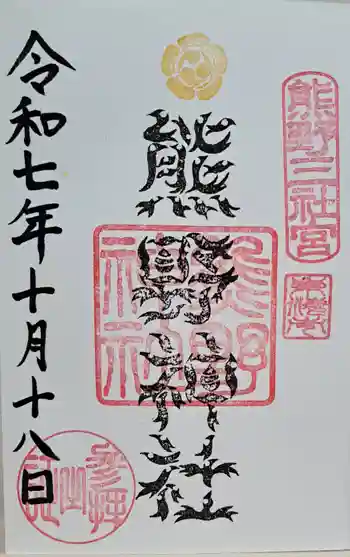 熊野三社宮
熊野神社
熊野神社
令和七年十月十八日
参拝